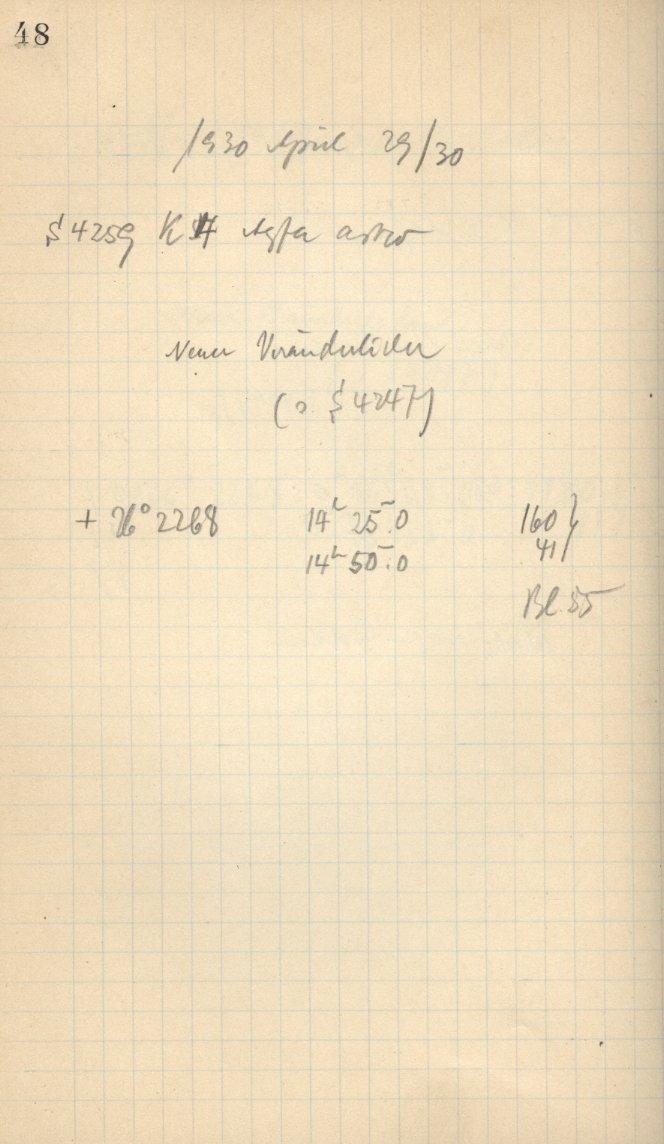 48
1930 April 29/30
S 4259 K Agfa astro
Neuer Veränderlicher
(= S 4247)
+ 26° 2268 14h 25m.0 160}
14h 50m.0 41}
Bl. 55